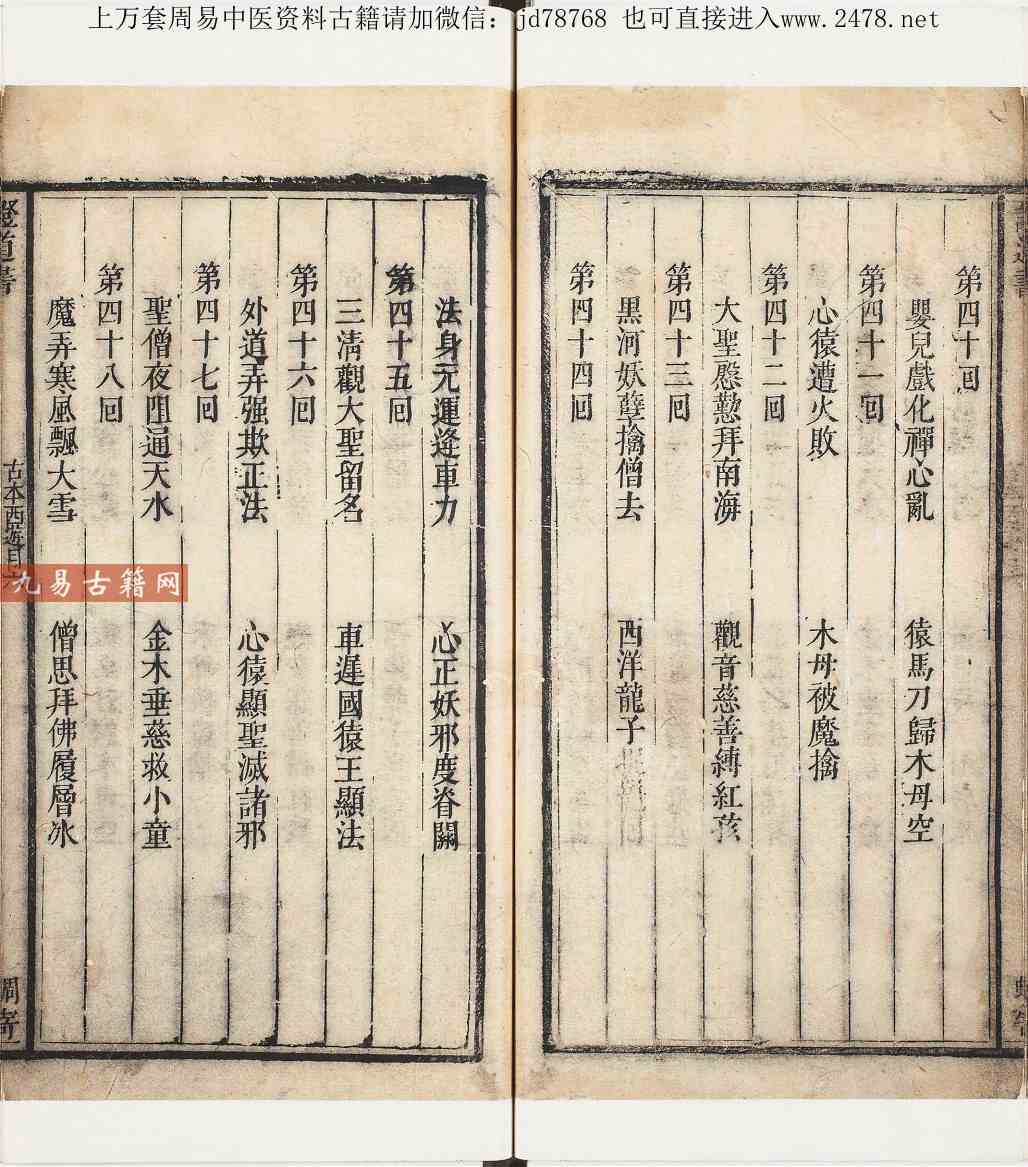 上万套周易中医资料古籍请加微信：jd78768 也可直接进入www.2478.net
第四十回
嬰兒戲化禪心亂 猿馬刀歸木母空
第四十一回
心猿遭火敗 木母被魔擒
第四十二回
大聖慇懃拜南海 觀音慈善縛紅孩
第四十三回
黑河妖孽擒僧去 西洋龍子
第四十四回
法身元運逢車力 心正妖邪度脊關
第四十五回
三淸觀大聖留名 車遲國猿王顯法
第四十六回
外道弄强欺正法 心猿顯聖滅諸邪
第四十七回
聖僧夜阻通天水 金木垂慈救小童
第四十八回
魔弄寒風飄大雪 僧思拜佛履層冰
證道書
古本西遊目
九易古籍网